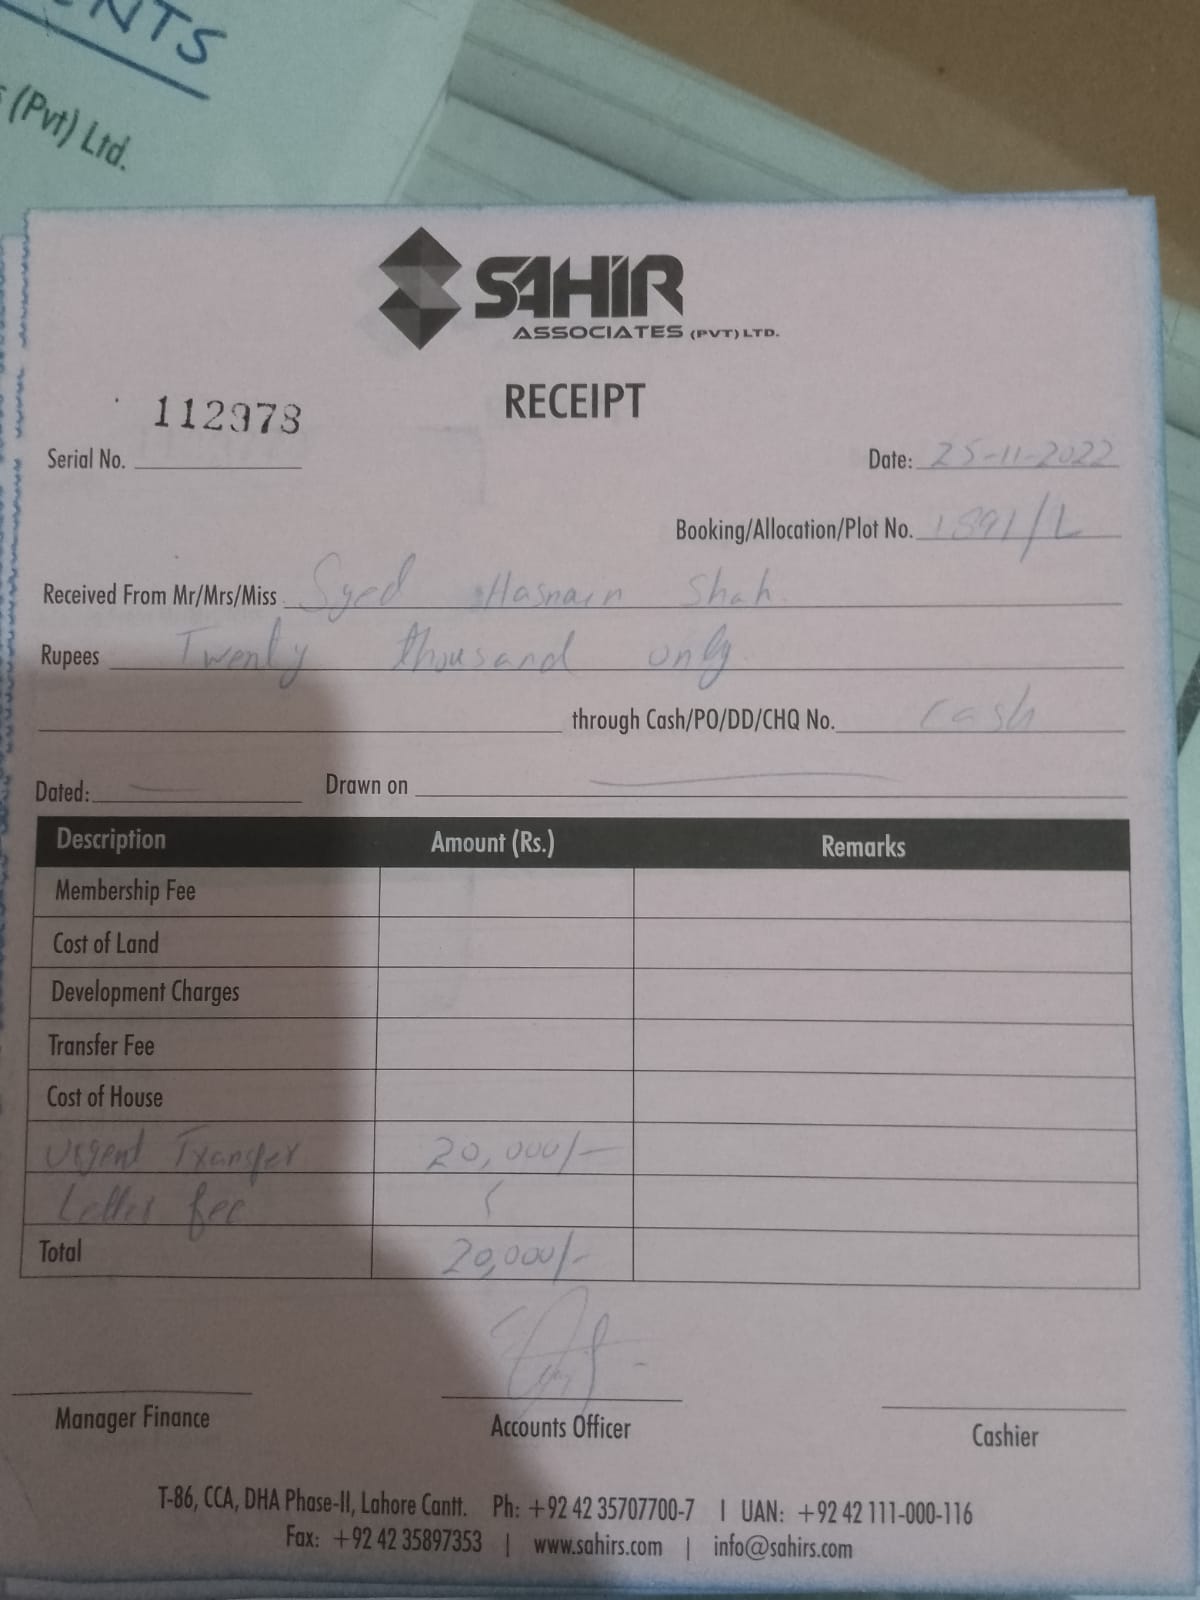 ENTS
(Pvt) Ltd.
SAHIR
ASSOCIATES (PVT) LTD.
RECEIPT
112978
Serial No.
Date: 25-11-2022
Booking/Allocation/Plot No. 1891/L
Received From Mr/Mrs/Miss Syed Hasnain Shah
Rupees Twenty thousand only
through Cash/PO/DD/CHQ No. cash
Dated: Drawn on
Description Amount (Rs.) Remarks
Membership Fee
Cost of Land
Development Charges
Transfer Fee
Cost of House
Urgent Transfer 20,000/-
Letter fee
Total 20,000/-
Manager Finance Accounts Officer Cashier
T-86, CCA, DHA Phase-II, Lahore Cantt. Ph: +92 42 35707700-7 | UAN: +92 42 111-000-116
Fax: +92 42 35897353 | www.sahirs.com | info@sahirs.com